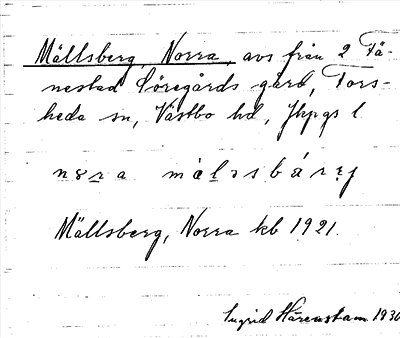 Mällsberg, Norra, avs från 2 Tå-
nestad Söregårds gård, Tors-
heda sn, Västbo hd, Jkpgs l
Mällsberg, Norra kb 1921.
Ingrid Härenstam 1930